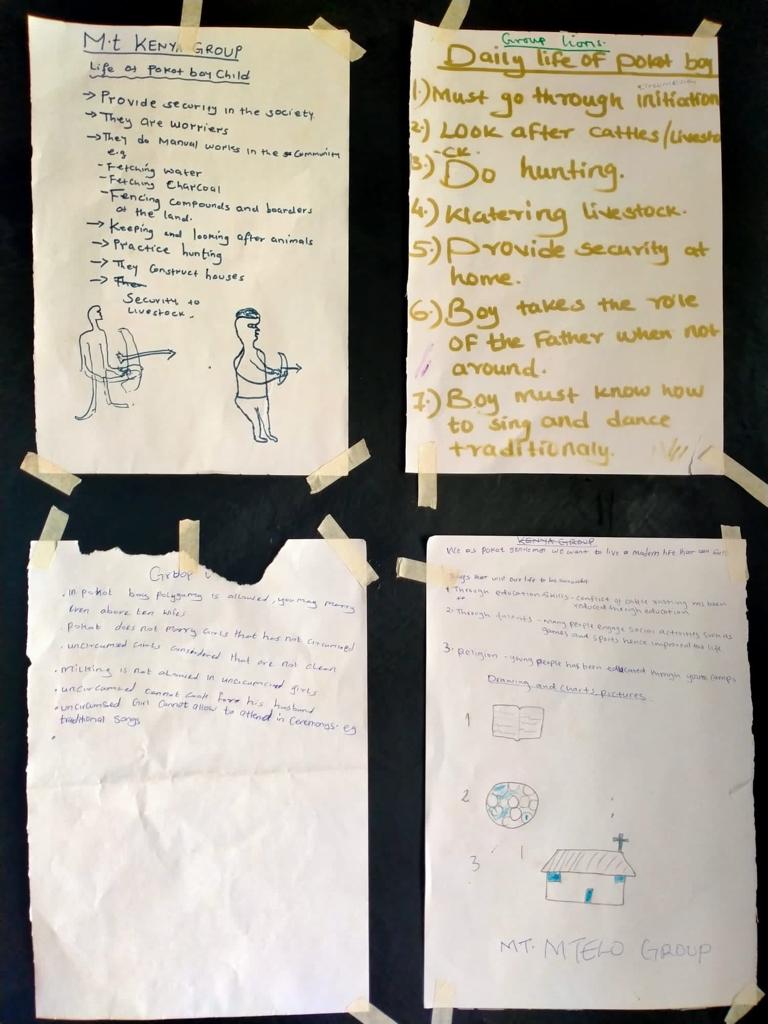 M.t KENYA GROUP
Life of Pokot boy Child
→ Provide security in the society.
→ They are worriers
→ They do Manual works in the Community
e.g
- Fetching water
- Fetching Charcoal
- Fencing compounds and boarders
of the land.
→ Keeping and looking after animals
→ Practice hunting
→ They construct houses
→ Security to
Livestock.
Group lions.
Daily life of pokot boy
circumcision
1.) Must go through initiation
2.) Look after cattles/Livesto
-ck.
3.) Do hunting.
4.) Klatering livestock.
5.) Provide security at
home.
6.) Boy takes the role
of the Father when not
around.
7.) Boy must know how
to sing and dance
traditionaly.
Group
. In pokot boy polygamy is allowed, you may marry
Even above ten wifes.
. pokot does not marry Girls that has not circumcised
. uncircumcised Girls considered that are not clean
. Milking is not allowed in uncircumcised girls
. uncircumcised cannot cook for his husband
. uncircumcised Girl cannot allow to attend in Ceremonys. eg
traditional songs
KENYA GROUP
We as pokot gentlemen we want to live a modern life that can
1 Through education/skills - conflict of cattle rustling has been
reduced through education
2. Through talents - many people engage social activities such as
games and sports hence improved the life
3. Religion - young people has been educated through youth camps
Drawing and charts pictures
1
2
3
MT. MTELO GROUP